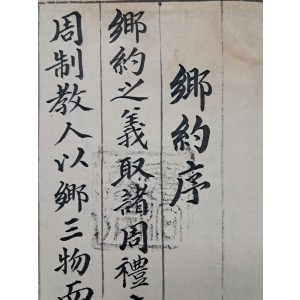 鄉約序
鄉約之義取諸周禮
周制教人以鄉三物而